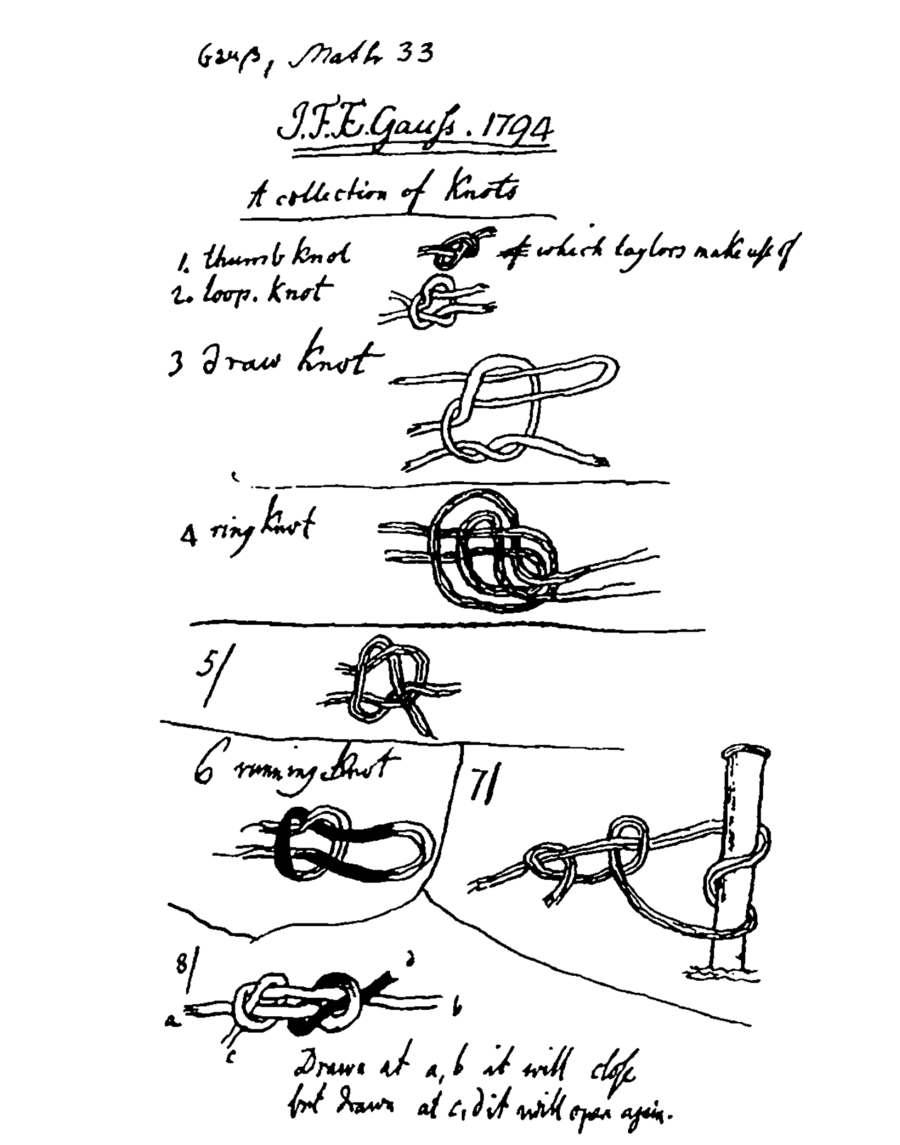 Gauß, Math 33
J.F.E. Gauſs. 1794
A collection of Knots
1. thumb knot which taylors make use of
2. loop. Knot
3 draw Knot
4 ring Knot
5/
6 running Knot
7/
8/
d
a
b
c
Drawn at a, b it will cloſe
but drawn at c, d it will open again.